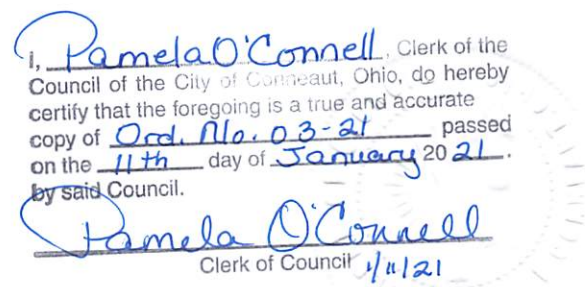 I, Pamela O'Connell, Clerk of the
Council of the City of Conneaut, Ohio, do hereby
certify that the foregoing is a true and accurate
copy of Ord. No. 03-21 passed
on the 11th day of January 20 21.
by said Council.
Pamela O'Connell
Clerk of Council 1/11/21